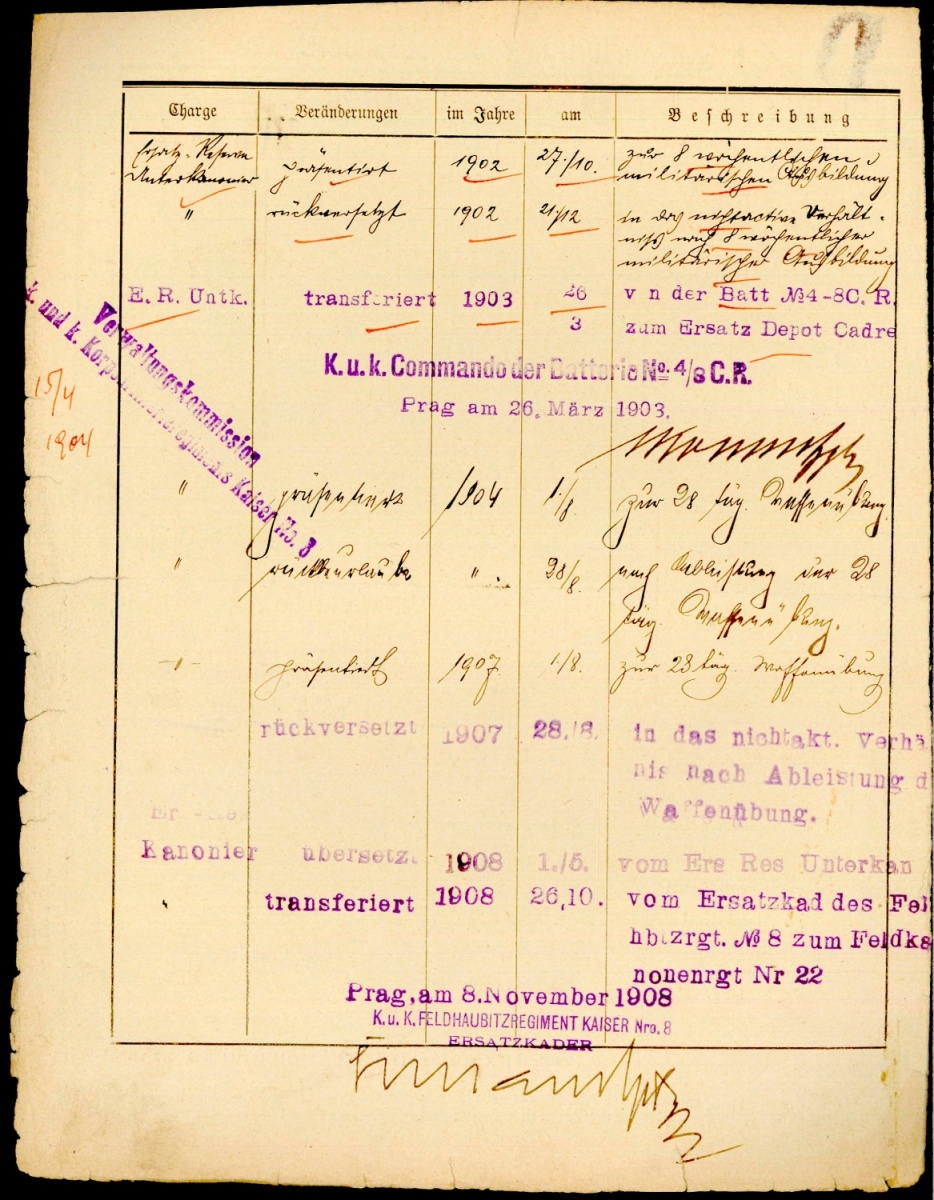 Charge Veränderungen im Jahre am Beschreibung
Ersatz-Reserve
Unterkanonier präsentirt 1902 27./10. zur 8 wöchentlichen
militärischen Ausbildung
" rückversetzt 1902 21/12 in das nichtactive Verhält-
niss nach 8 wöchentlicher
militärischer Ausbildung
E. R. Untk. transferiert 1903 26 v n der Batt №4-8C. R.
3 zum Ersatz Depot Cadre
K.u.k. Commando der Batterie No. 4/8 C.R.
Prag am 26. März 1903.
Verwaltungskommission
k. und k. Korpsartillerieregiments Kaiser No. 8
15/4
1904
" präsentiert 1904 1./8. zur 28 täg. Waffenübung
" rückbeurlaubt " 28/8. nach Ableistung der 28
täg. Waffenübung.
-"- präsentiert 1907. 1./8. zur 28 täg. Waffenübung
rückversetzt 1907 28./8. in das nichtakt. Verhä
nis nach Ableistung d
Waffenübung.
Kanonier übersetzt 1908 1./5. vom Ers Res Unterkan
" transferiert 1908 26,10. vom Ersatzkad des Fel
hbtzrgt. № 8 zum Feldka
nonenrgt Nr 22
Prag, am 8. November 1908
K. u. K. FELDHAUBITZREGIMENT KAISER Nro. 8
ERSATZKADER